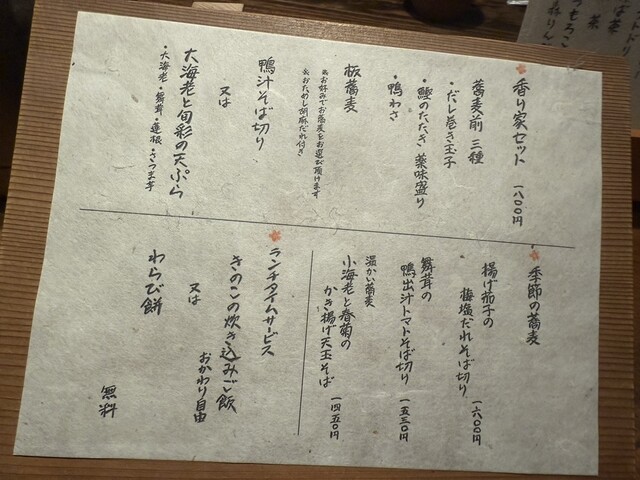 香り家セット 一八〇〇円
蕎麦前 三種
・だし巻き玉子
・鰹のたたき 薬味盛り
・鴨わさ
板蕎麦
※お好みでお蕎麦をお選び頂けます
※おためし胡麻だれ付き
鴨汁そば切り
又は
大海老と旬彩の天ぷら
・大海老・舞茸・蓮根・さつま芋
季節の蕎麦
揚げ茄子の
梅塩だれそば切り 一六〇〇円
舞茸の
鴨出汁トマトそば切り 一五三〇円
温かい蕎麦
小海老と春菊の
かき揚げ天玉そば 一四五〇円
ランチタイムサービス
きのこの炊き込みご飯
おかわり自由
又は
わらび餅
無料